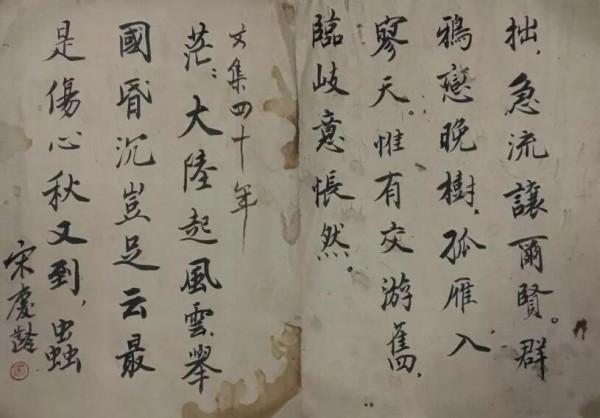 拙，急流讓爾賢。群
鴉戀晚樹，孤雁入
寥天。惟有交游舊，
臨岐意悵然。
文集四十年
茫：大陸起風雲舉
國昏沉豈足云最
是傷心秋又到，蟲
宋慶齡